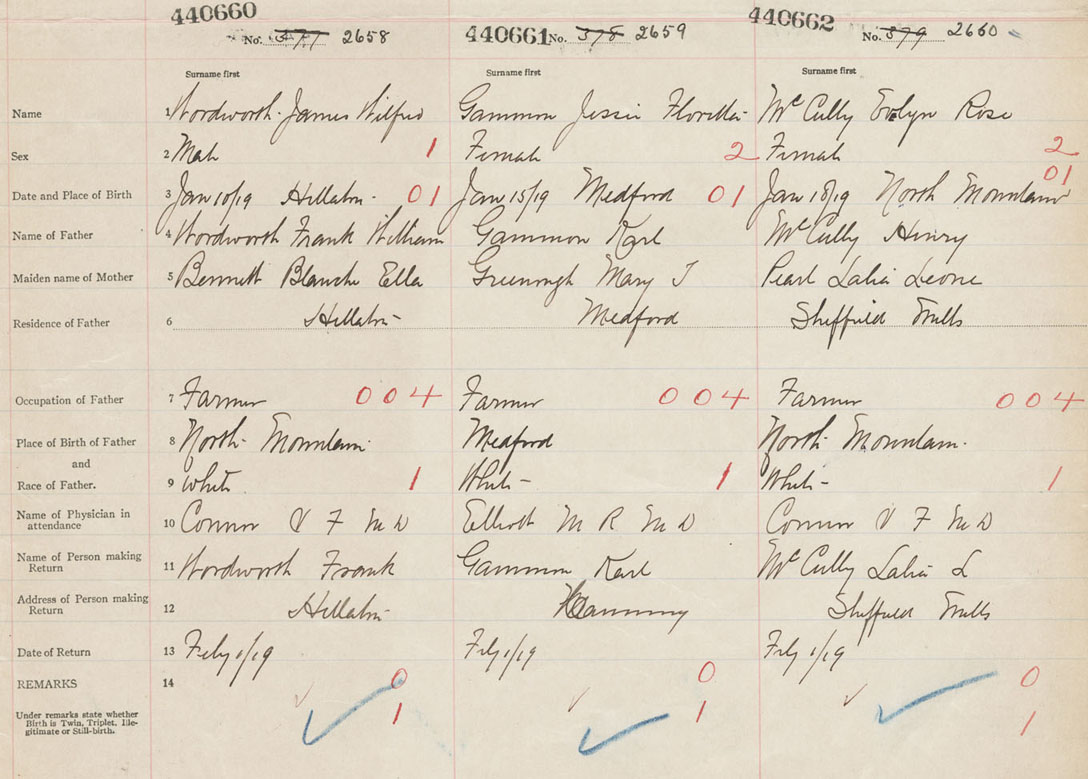 440660 440661 440662
No. 377 2658 No. 378 2659 No. 379 2660
Surname first Surname first Surname first
Name 1 Wordworth James Wilfred Gammon Jessie Floretta McCully Evelyn Rose
Sex 2 Male 1 Female 2 Female 2
Date and Place of Birth 3 Jan 10/19 Hillaton 01 Jan 15/19 Medford 01 Jan 18/19 North Mountain 01
Name of Father 4 Wordworth Frank William Gammon Karl McCully Henry
Maiden name of Mother 5 Bennett Blanche Ella Greenough Mary J Pearl Lalia Leone
Residence of Father 6 Hillaton Medford Sheffield Mills
Occupation of Father 7 Farmer 004 Farmer 004 Farmer 004
Place of Birth of Father 8 North Mountain Medford North Mountain
and
Race of Father. 9 White 1 White 1 White 1
Name of Physician in
attendance 10 Connor V F M D Elliott M R M D Connor V F M D
Name of Person making
Return 11 Wordworth Frank Gammon Karl McCully Lalia L
Address of Person making
Return 12 Hillaton Canning Sheffield Mills
Date of Return 13 Feby 1/19 Feby 1/19 Feby 1/19
REMARKS 14 0 0 0
Under remarks state whether
Birth is Twin, Triplet, Ille-
gitimate or Still-birth. 1 1 1